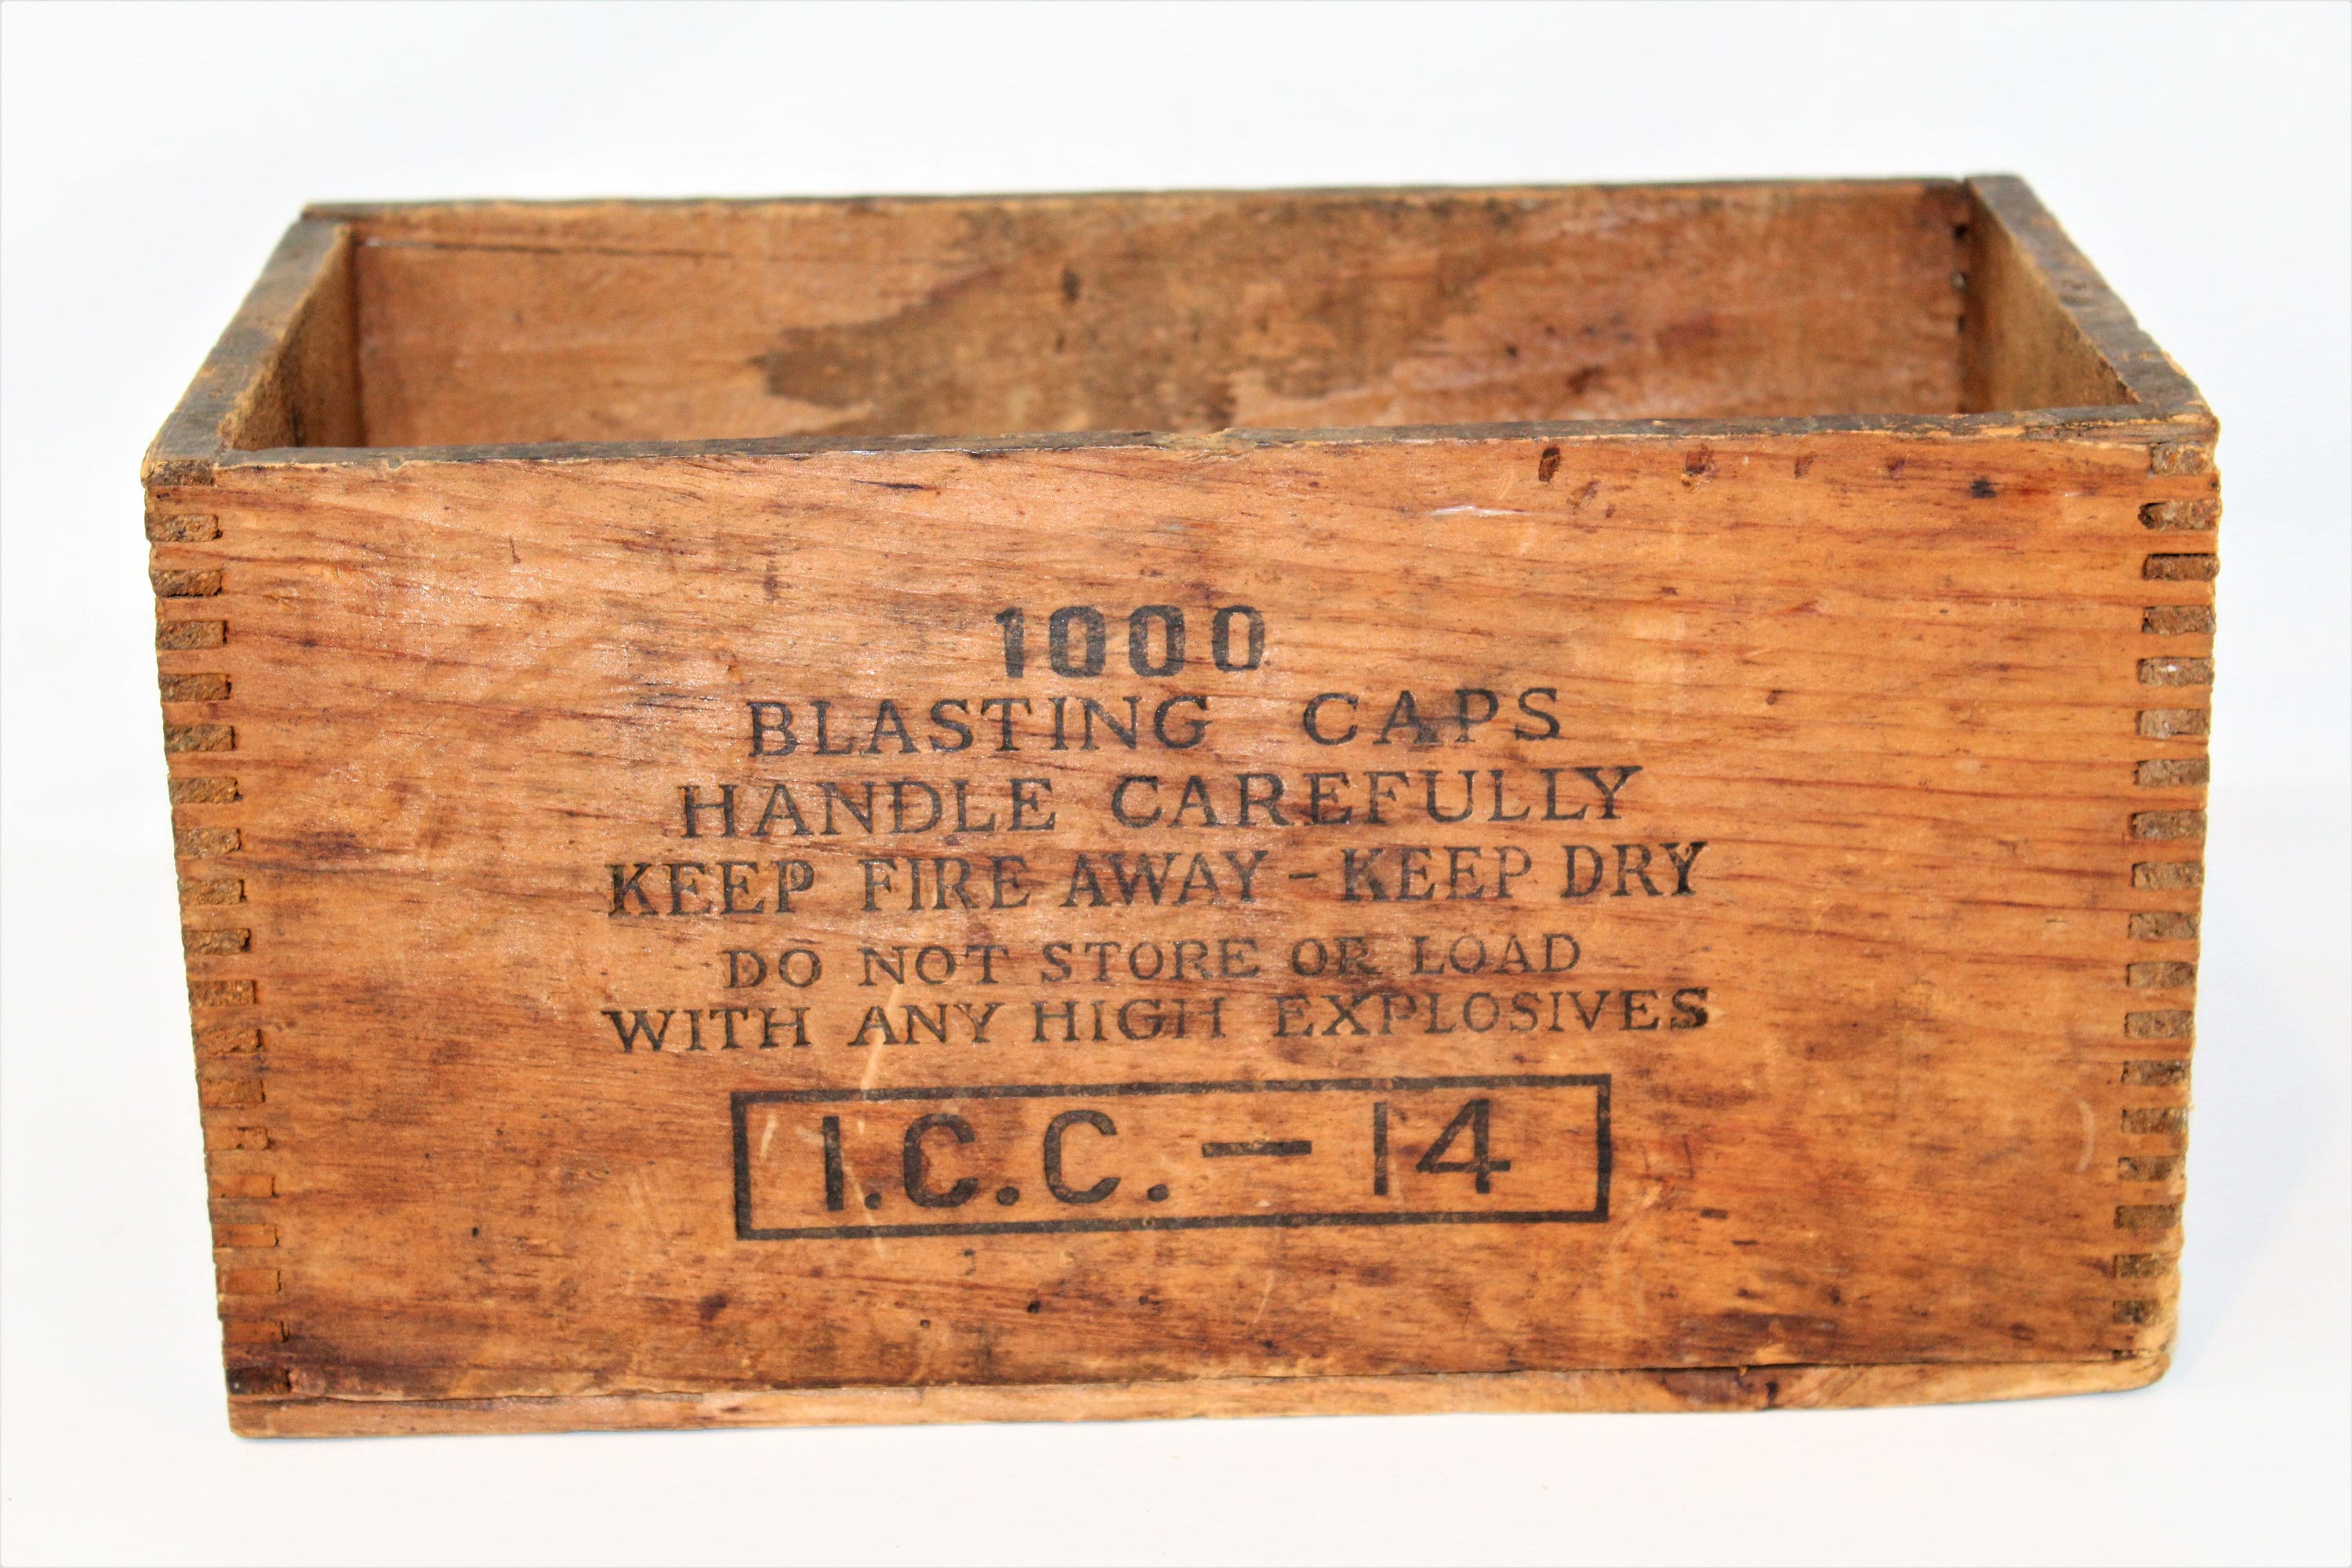 1000
BLASTING CAPS
HANDLE CAREFULLY
KEEP FIRE AWAY - KEEP DRY
DO NOT STORE OR LOAD
WITH ANY HIGH EXPLOSIVES
I.C.C. - 14